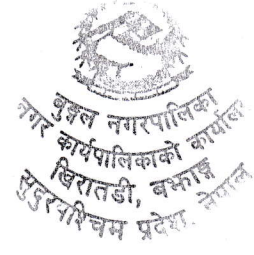 बुङ्गल नगरपालिका
नगर कार्यपालिकाको कार्यालय
खिरातडी, बझाङ्ग
सुदुरपश्चिम प्रदेश, नेपाल